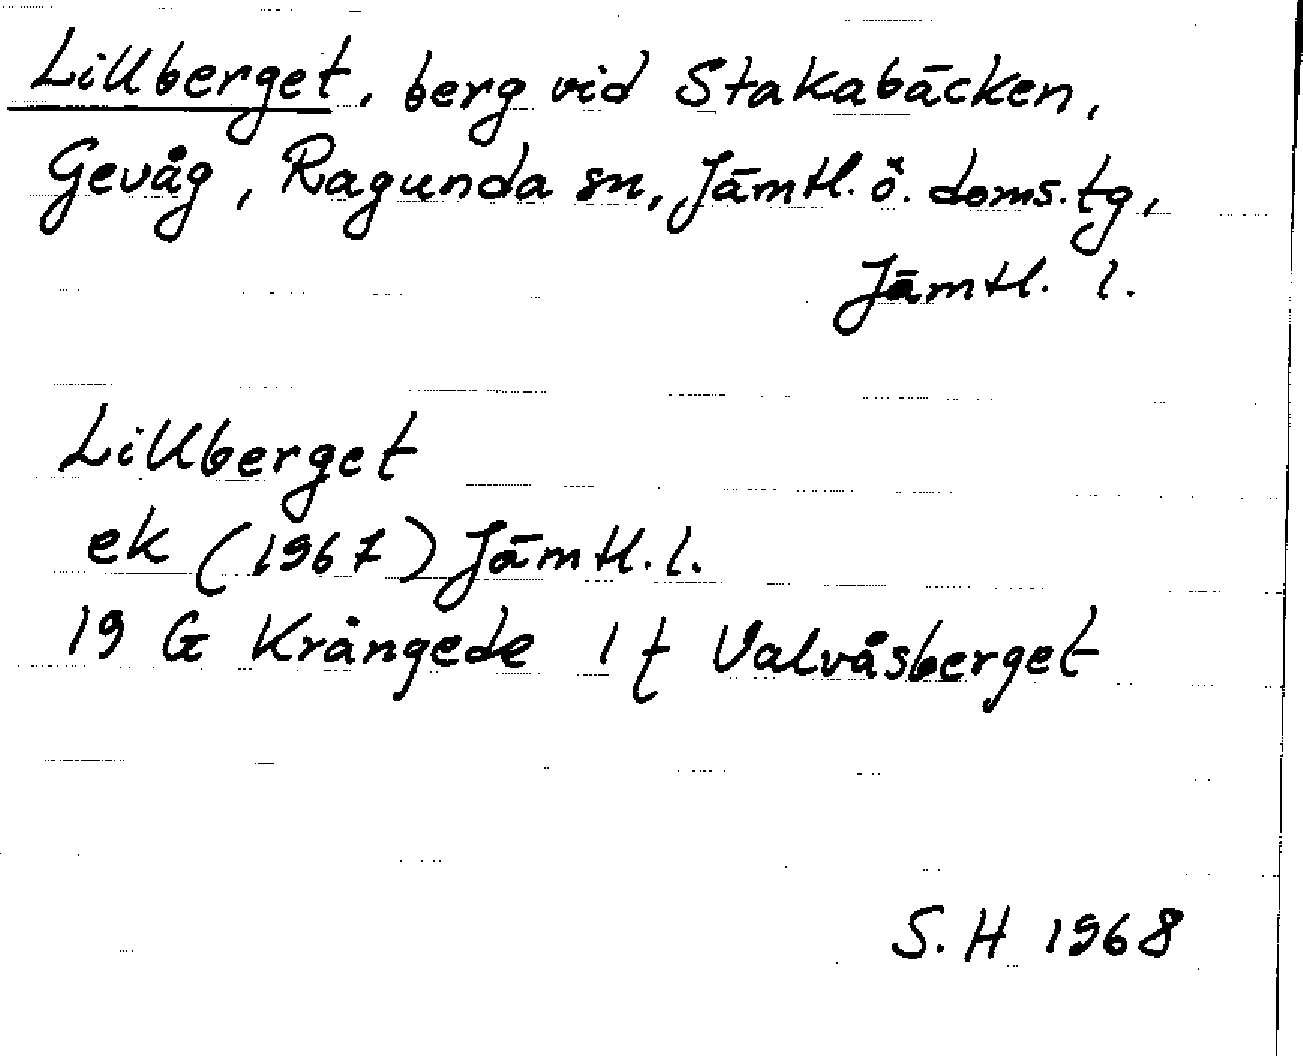 Lillberget, berg vid Stakabäcken,
Gevåg, Ragunda sn, Jämtl. ö. doms. tg,
Jämtl. l.
Lillberget
ek (1967) Jämtl. l.
19 G Krångede 1 f Valvåsberget
S. H 1968